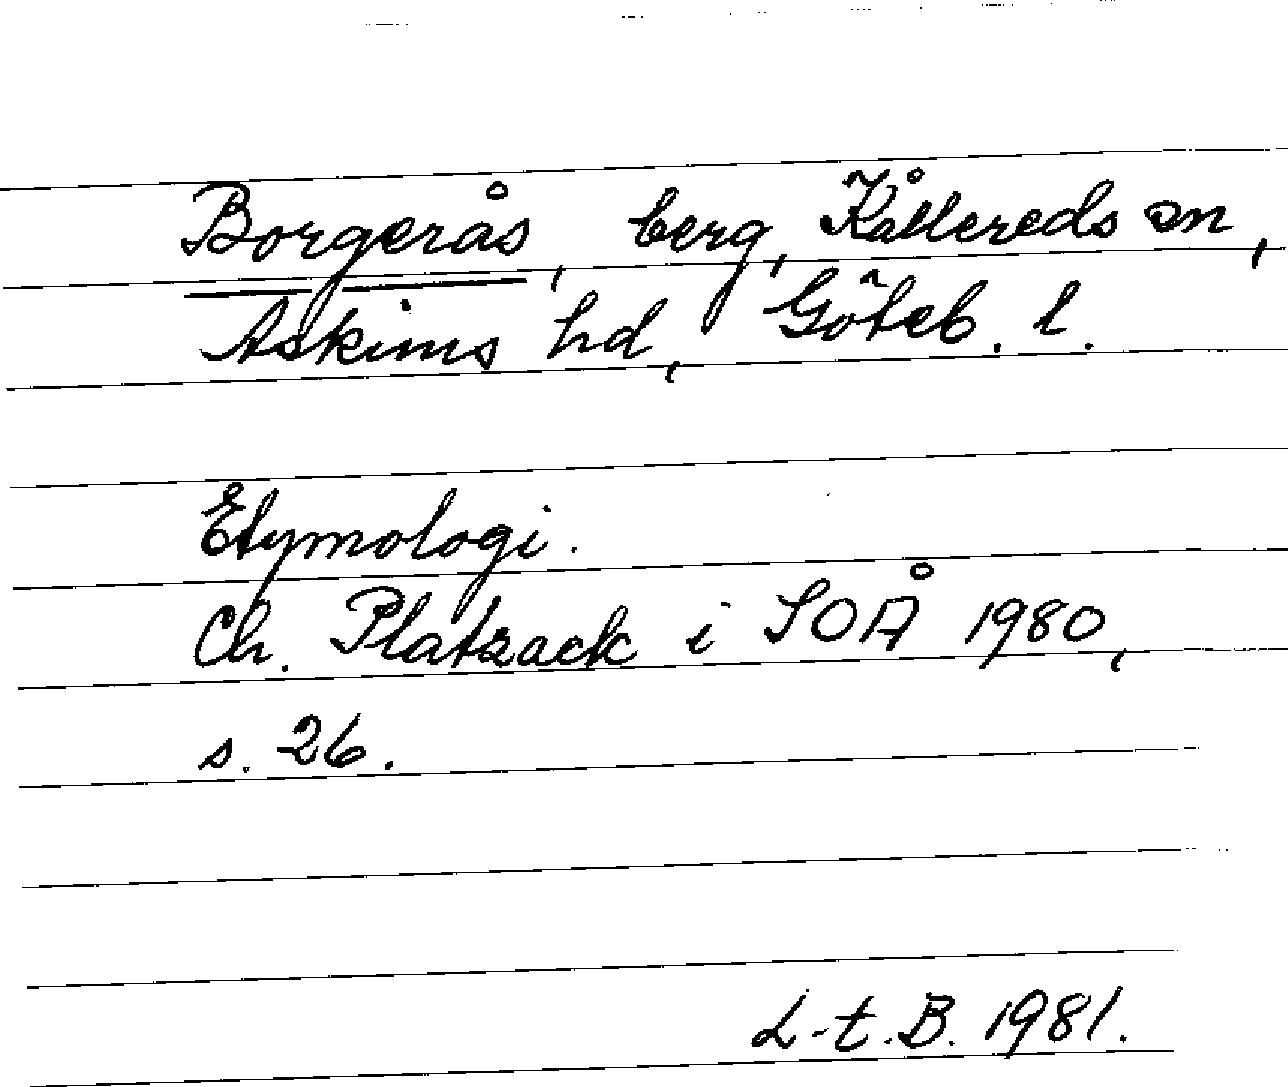 Borgerås, berg, Kållereds sn,
Askims hd, Göteb. l.
Etymologi.
Ch. Platzack i SOÅ 1980,
s. 26.
L-t. B. 1981.